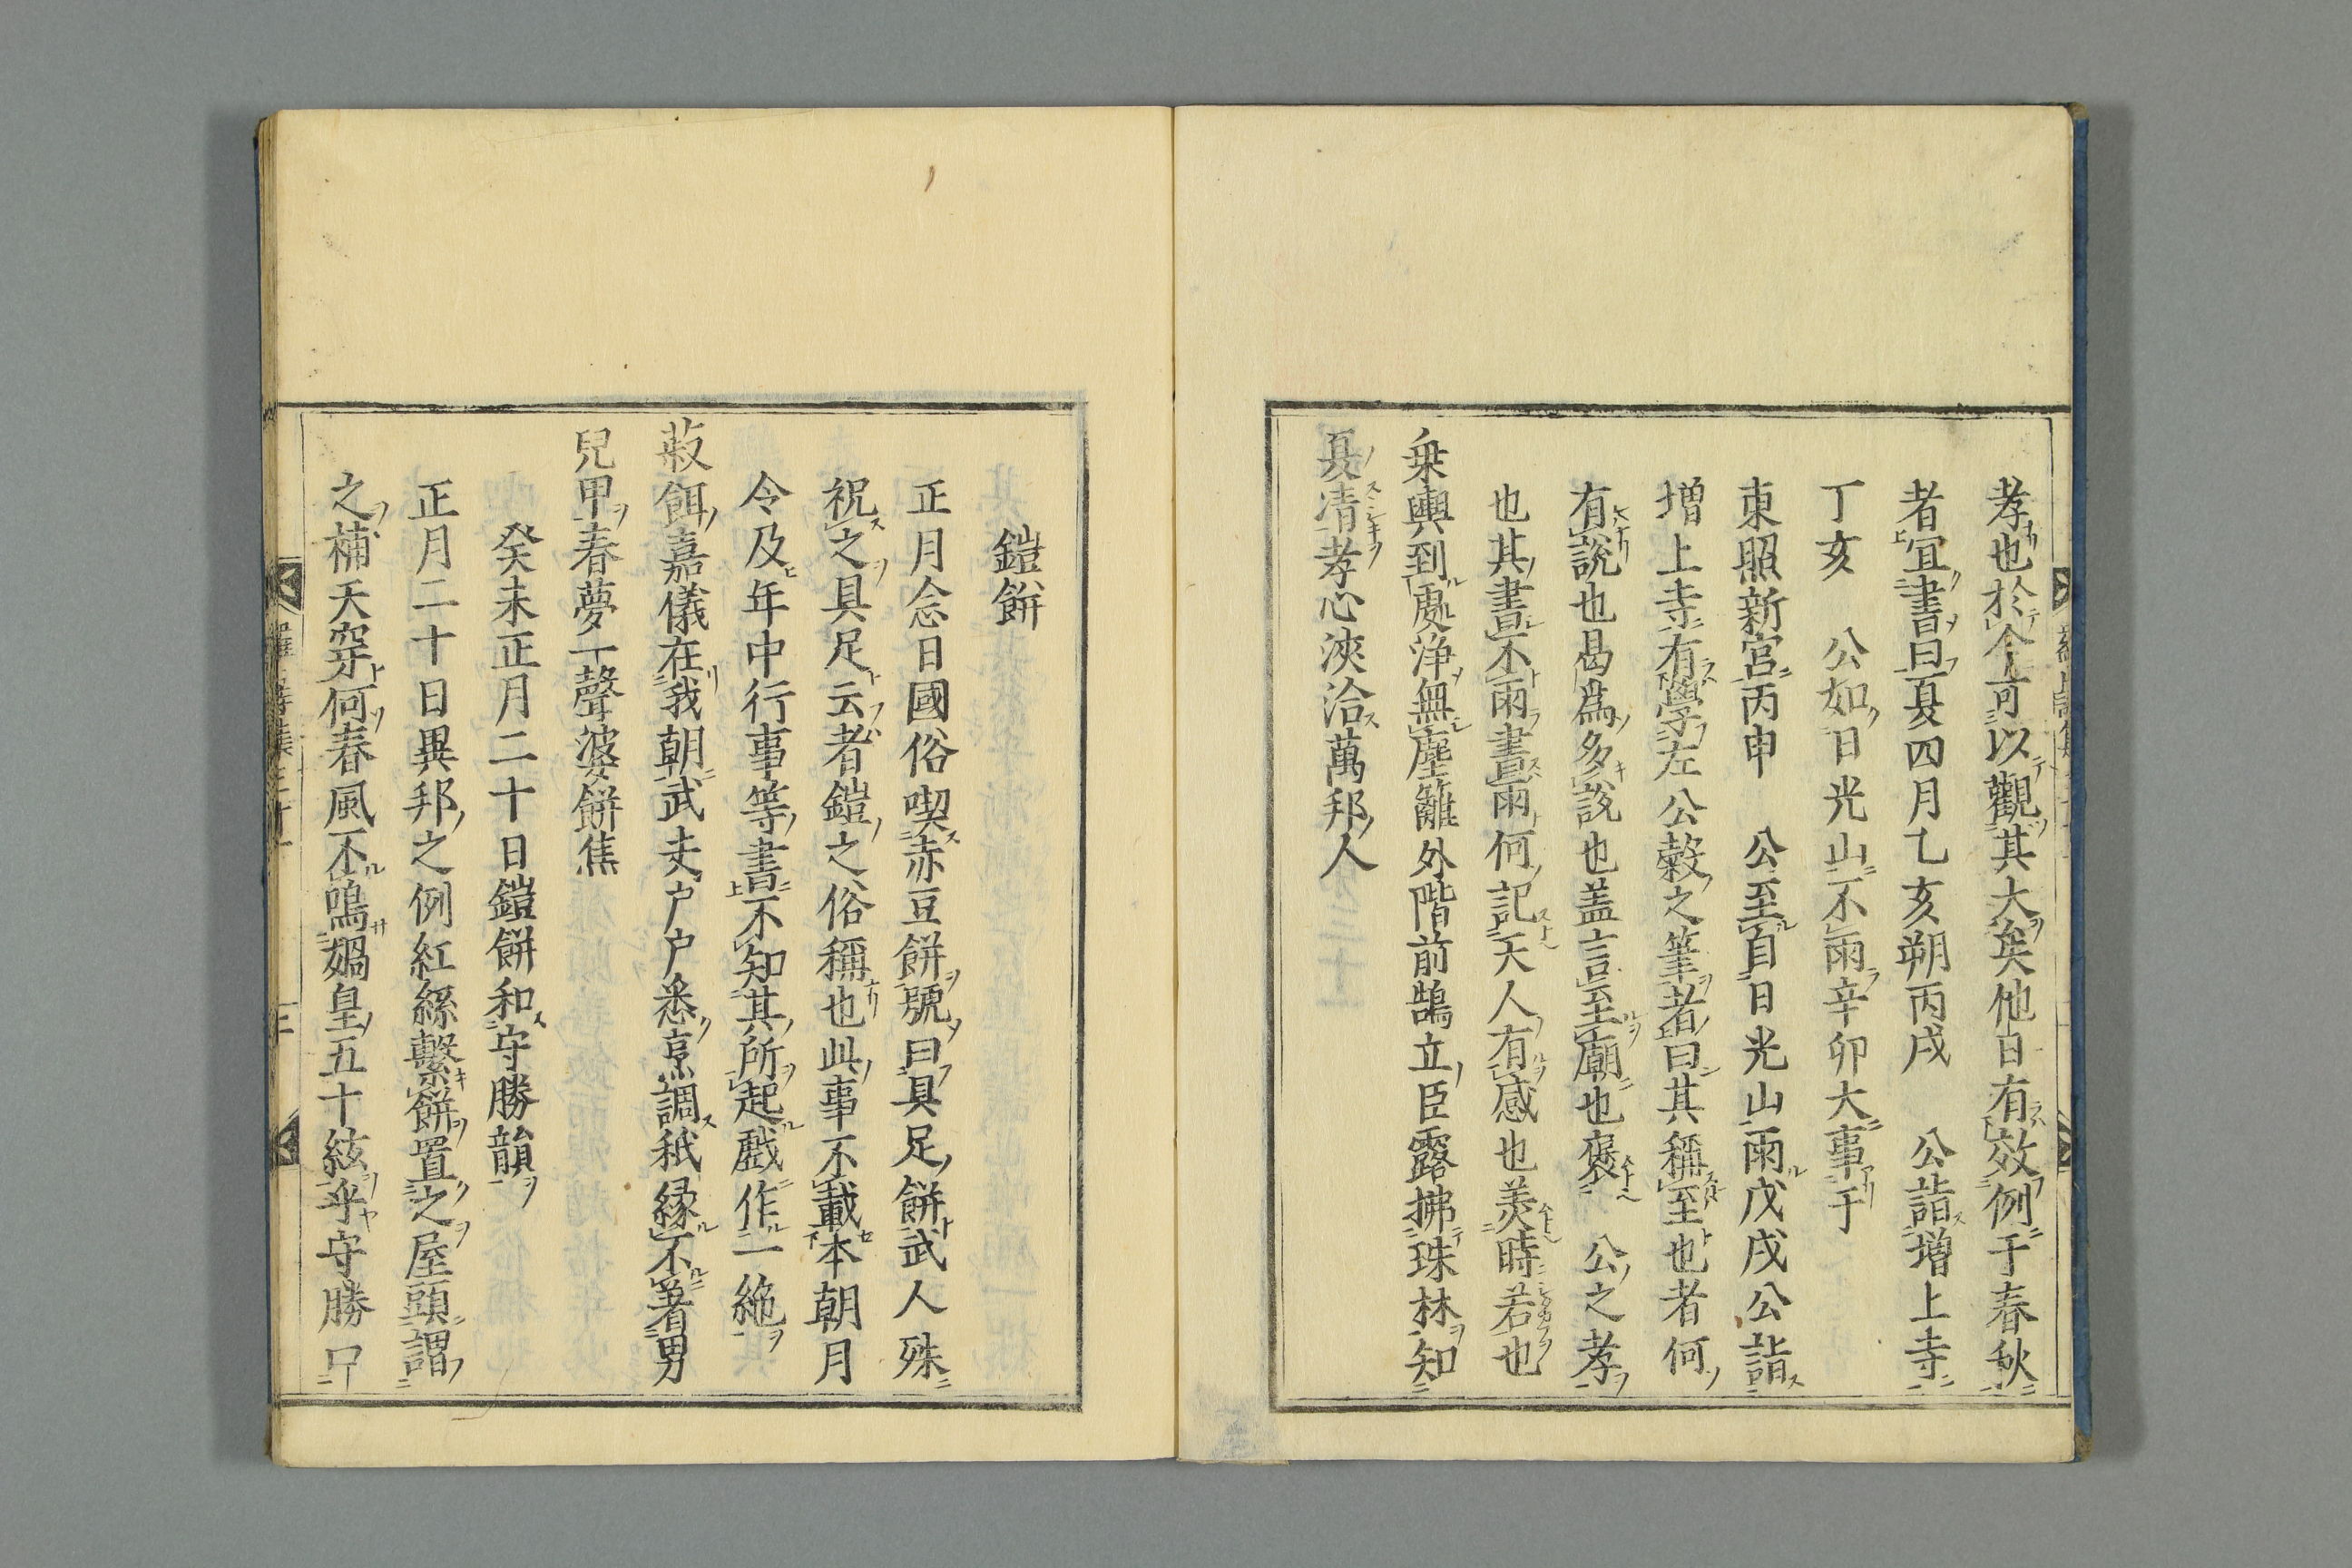 孝也於今可以觀其大矣他日有效例于春秋
者宜書曰夏四月乙亥朔丙戌　公詣增上寺
丁亥　公如日光山不雨辛卯大事于
東照新宮丙申　公至自日光山雨戊戌公詣
增上寺有學左公穀之筆者曰其稱至也者何
有說也曷爲多說也盖言至廟也褒　公之孝
也其書不雨書雨何記天人有感也美時若也
乗輿到處浄無塵籬外階前鵠立臣露拂珠林知
夏凊孝心浹洽萬邦人
鎧餅
正月念日國俗喫赤豆餅號曰具足餅武人殊
祝之具足云者鎧之俗稱也此事不載本朝月
令及年中行事等書不知其所起戲作一絶
菽餌嘉儀在我朝武夫戸戸悉烹調秖縁不著男
兒甲春夢一聲婆餅焦
癸未正月二十日鎧餅和守勝韻
正月二十日異邦之例紅絲繫餅置之屋頭謂
之補天穿何春風不鳴媧皇五十絃乎守勝